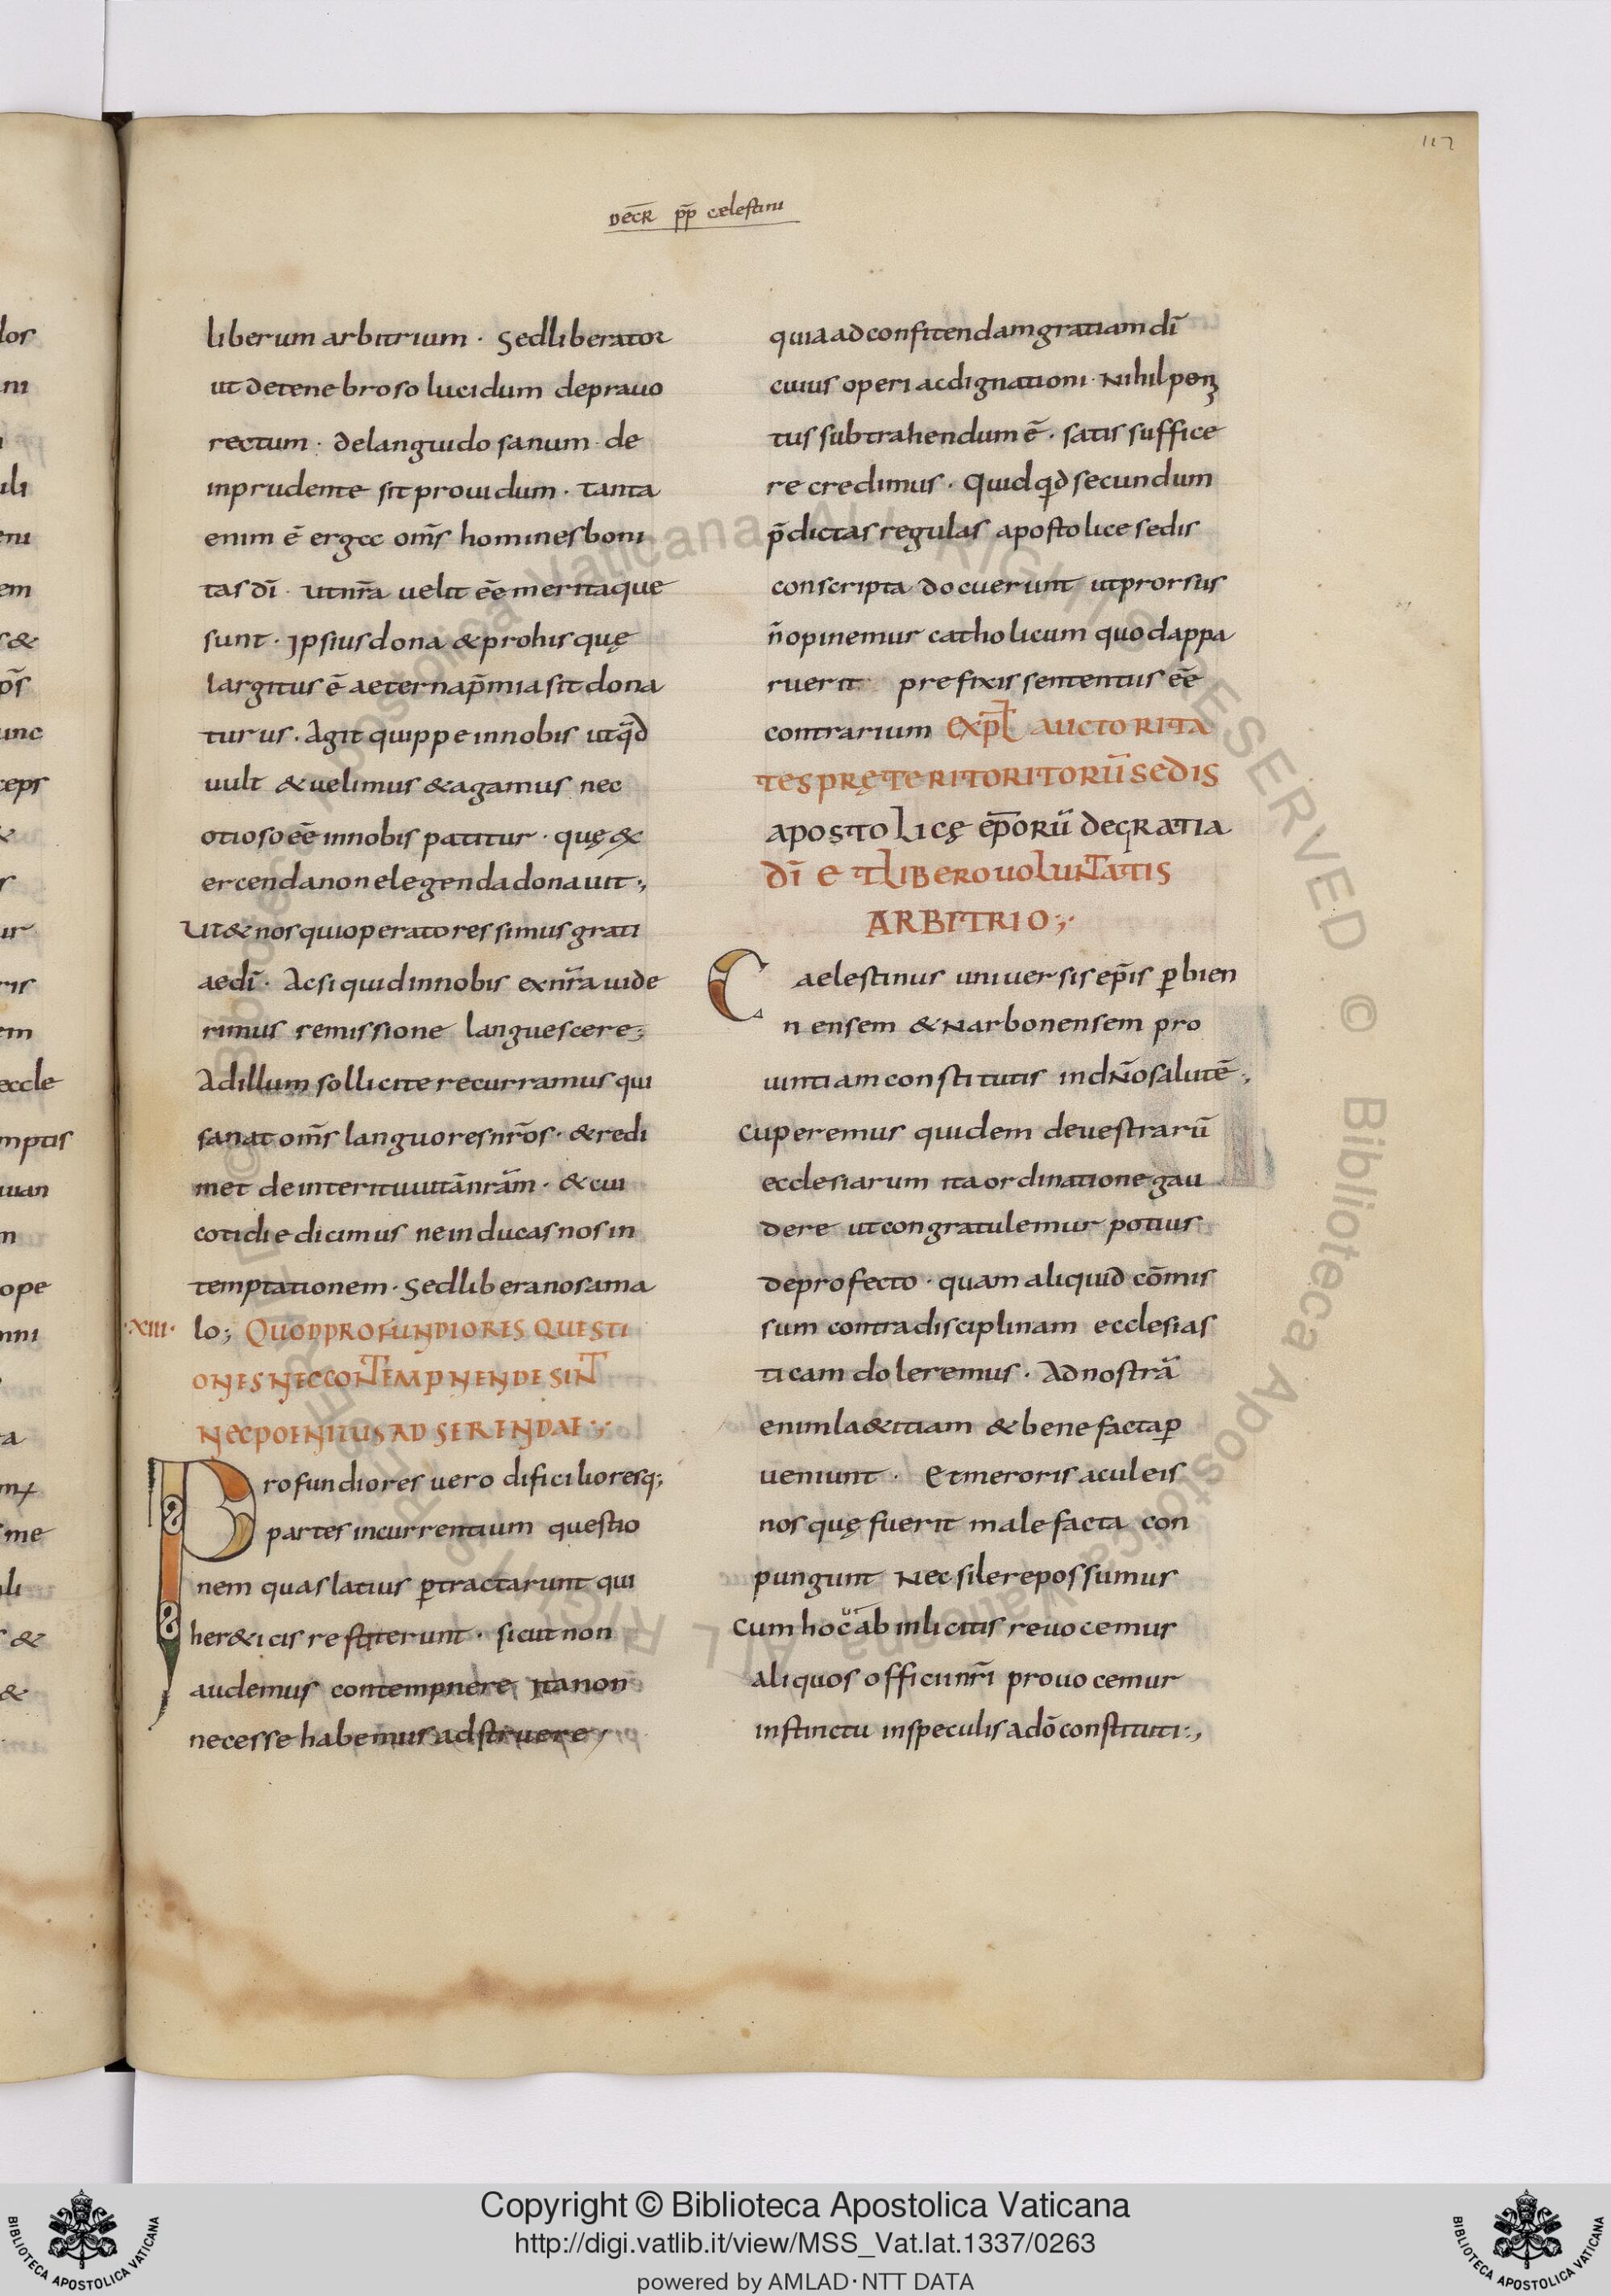 117
DECR̄ pp̄ cælestini
liberum arbitrium · Sedliberator
ut detenebroso lucidum deprauo
rectum · delanguido sanum · de
inprudente sit prouidum · tanta
enim ē ergcc om̄s hominesboni
tas dī · ut nr̄a uelit eē merita que
sunt · Ipsius dona & prohis quę
largitus ē aeterna p̄mia sit dona
turus · Agit quippe innobis ut qd̄
uult & uelimus & agamus nec
otioso eē innobis patitur · quę &
ercenda non elegenda donauit ·,
Ut & nos quioperatores simus grati
ae dī · Acsi quid innobis exnr̄a uide
rimus remissione languescere;
Adillum sollicite recurramus qui
sanat om̄s languores nr̄os · & redi
met deinteritu uitā nrām · & cui
cotidie dicimus ne inducas nos in
temptationem · Sed libera nos ama
·XIII· lo; QUOD PROFUNDIORES QUESTI
ONES NEC CONTEMPNENDE SINT
NEC POENITUS AD SERENDAE ·,·
Profundiores uero dificilioresq;
partes incurrentium questio
nem quas latius ꝑtractarunt qui
her&icis restiterunt · sicut non
audemus contempnere, Ita non
necesse habemus adstruere,
quia ad confitendam gratiam dī
cuius operi ac dignationi · Nihil peni
tus subtrahendum ē · satis suffice
re credimus · Quidqd̄ secundum
p̄dictas regulas apostolice sedis
conscripta docuerunt ut prorsus
n̄ opinemur catholicum quod appa
ruerit prefixis sententiis eē
contrarium EXPL̄ AUCTORITA
TES PRĘTERITORITORŪ SEDIS
APOSTOLICĘ EP̄ORŪ DE GRATIA
DĪ E T LIBERO VOLUNTATIS
ARBITRIO ·,·
Caelestinus uniuersis ep̄is ꝑ bien
nensem & Narbonensem pro
uintiam constitutis in dn̄o salutē ·,
Cuperemus quidem de uestrarū
ecclesiarum ita ordinatione gau
dere ut congratulemur potius
de profecto · quam aliquid cōmis
sum contra disciplinam ecclesias
ticam doleremus · Ad nostrā
enim la&itiam & bene facta ꝑ
ueniunt · Et meroris aculeis
nos quę fuerit male facta con
pungunt Nec silere possumus
Cum hoc ut ab inlicitis reuocemur
aliquos officii nr̄i prouocemur
instinctu inspeculis a dō constituti ·,
Copyright © Biblioteca Apostolica Vaticana
http://digi.vatlib.it/view/MSS_Vat.lat.1337/0263
powered by AMLAD·NTT DATA
BIBLIOTECA APOSTOLICA VATICANA
BIBLIOTECA APOSTOLICA VATICANA